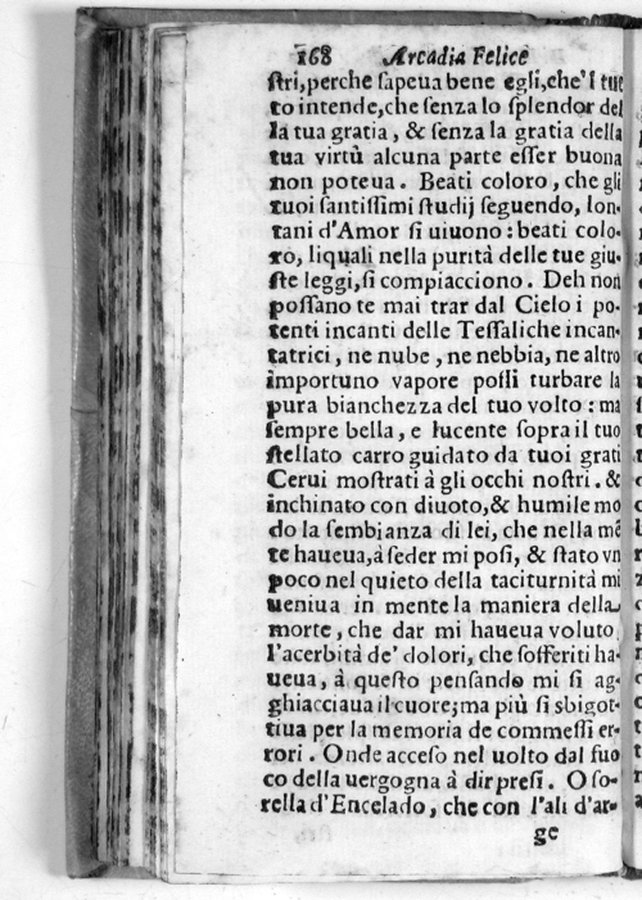 168 Arcadia Felice
ſtri, perche ſapeua bene egli, che'l tut
to intende, che ſenza lo ſplendor del
la tua gratia, & ſenza la gratia della
tua virtù alcuna parte eſſer buona
non poteua. Beati coloro, che gli
tuoi ſantiſſimi ſtudij ſeguendo, lon-
tani d'Amor ſi uiuono: beati colo-
ro, liquali nella purità delle tue giu-
ſte leggi, ſi compiacciono. Deh non
poſſano te mai trar dal Cielo i po-
tenti incanti delle Teſſaliche incan-
tatrici, ne nube, ne nebbia, ne altro
importuno vapore poſſi turbare la
pura bianchezza del tuo volto: ma
ſempre bella, e lucente ſopra il tuo
ſtellato carro guidato da tuoi grati
Cerui moſtrati à gli occhi noſtri. &
inchinato con diuoto, & humile mo
do la ſembianza di lei, che nella mẽ
te haueua, à ſeder mi poſi, & ſtato vn
poco nel quieto della taciturnità mi
ueniua in mente la maniera della
morte, che dar mi haueua voluto
l'acerbità de' dolori, che ſofferiti ha-
ueua, à queſto penſando mi ſi ag-
ghiacciaua il cuore; ma più ſi sbigot-
tiua per la memoria de commeſſi er-
rori. Onde acceſo nel uolto dal fuo
co della uergogna à dir preſi. O ſo-
rella d'Encelado, che con l'ali d'ar-
ge